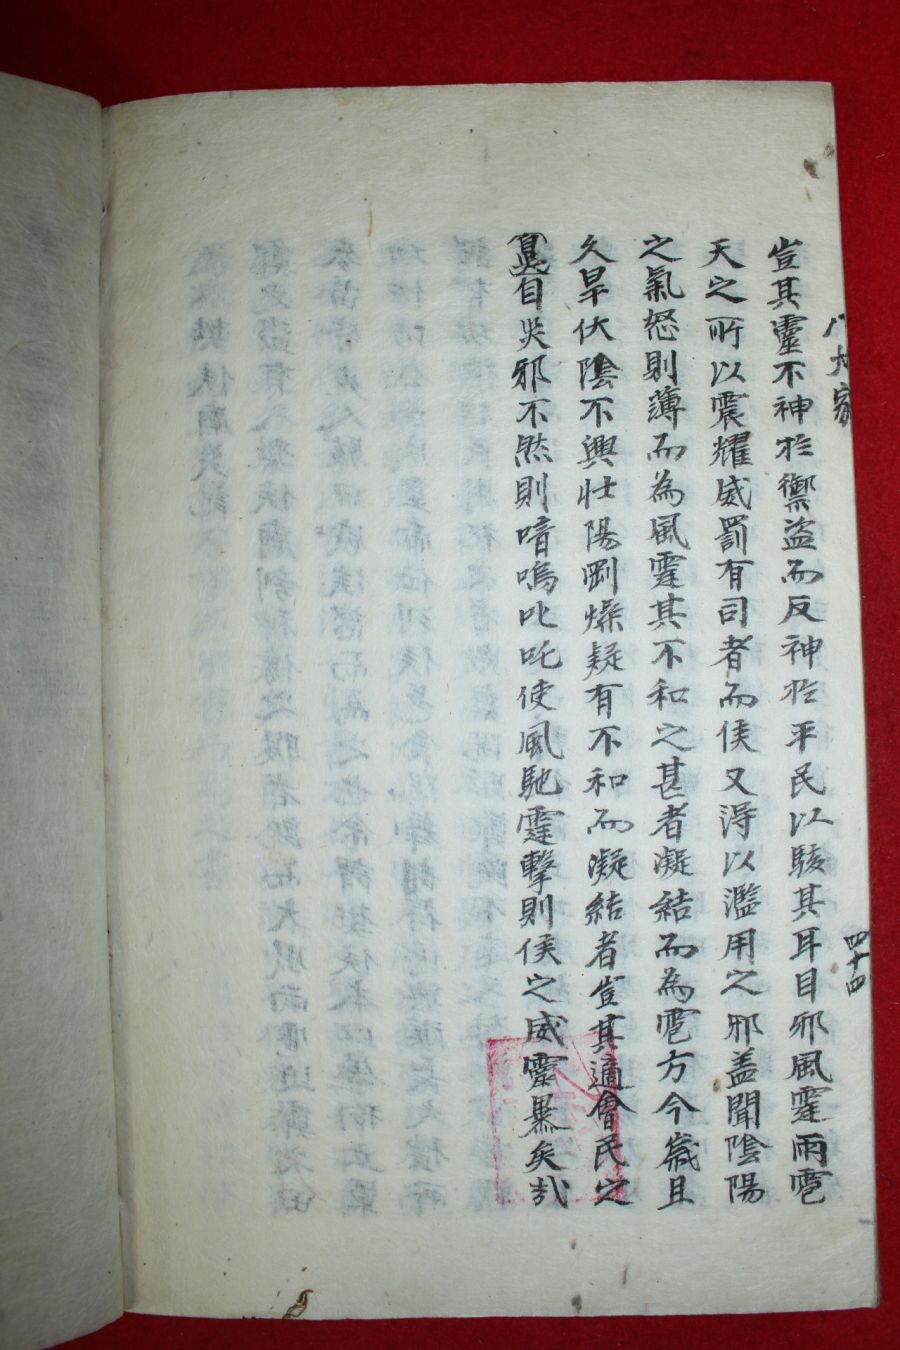 八大家
四十四
豈其靈不神於禦盜而反神於平民以駭其耳目邪風霆雨雹
天之所以震耀威罰有司者而侯又得以濫用之邪盖聞陰陽
之氣怒則薄而為風霆其不和之甚者凝結而為雹方今歲且
久旱伏陰不興壮陽剛燥疑有不和而凝結者豈其適會民之
自災邪不然則喑嗚叱吒使風馳霆擊則侯之威靈暴矣哉